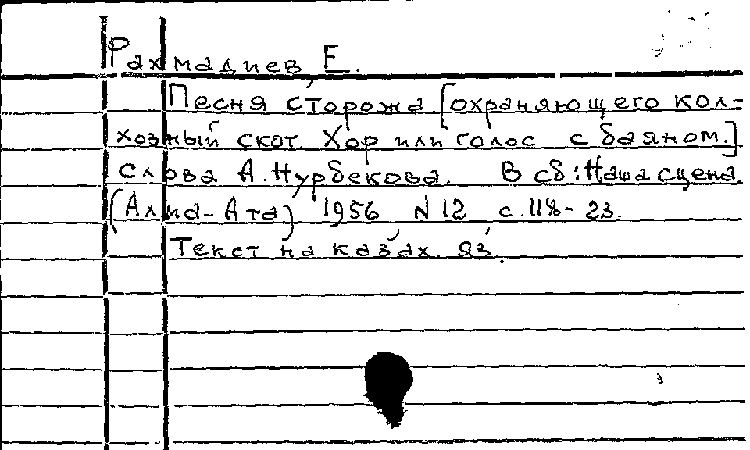 Рахмадиев, Е.
Песня сторожа [охраняющего кол-
хозный скот. Хор или голос с баяном.]
Слова А. Нурбекова. В сб: Наша сцена
(Алма-Ата) 1956 N 12 с. 118-23.
Текст на казах. яз.